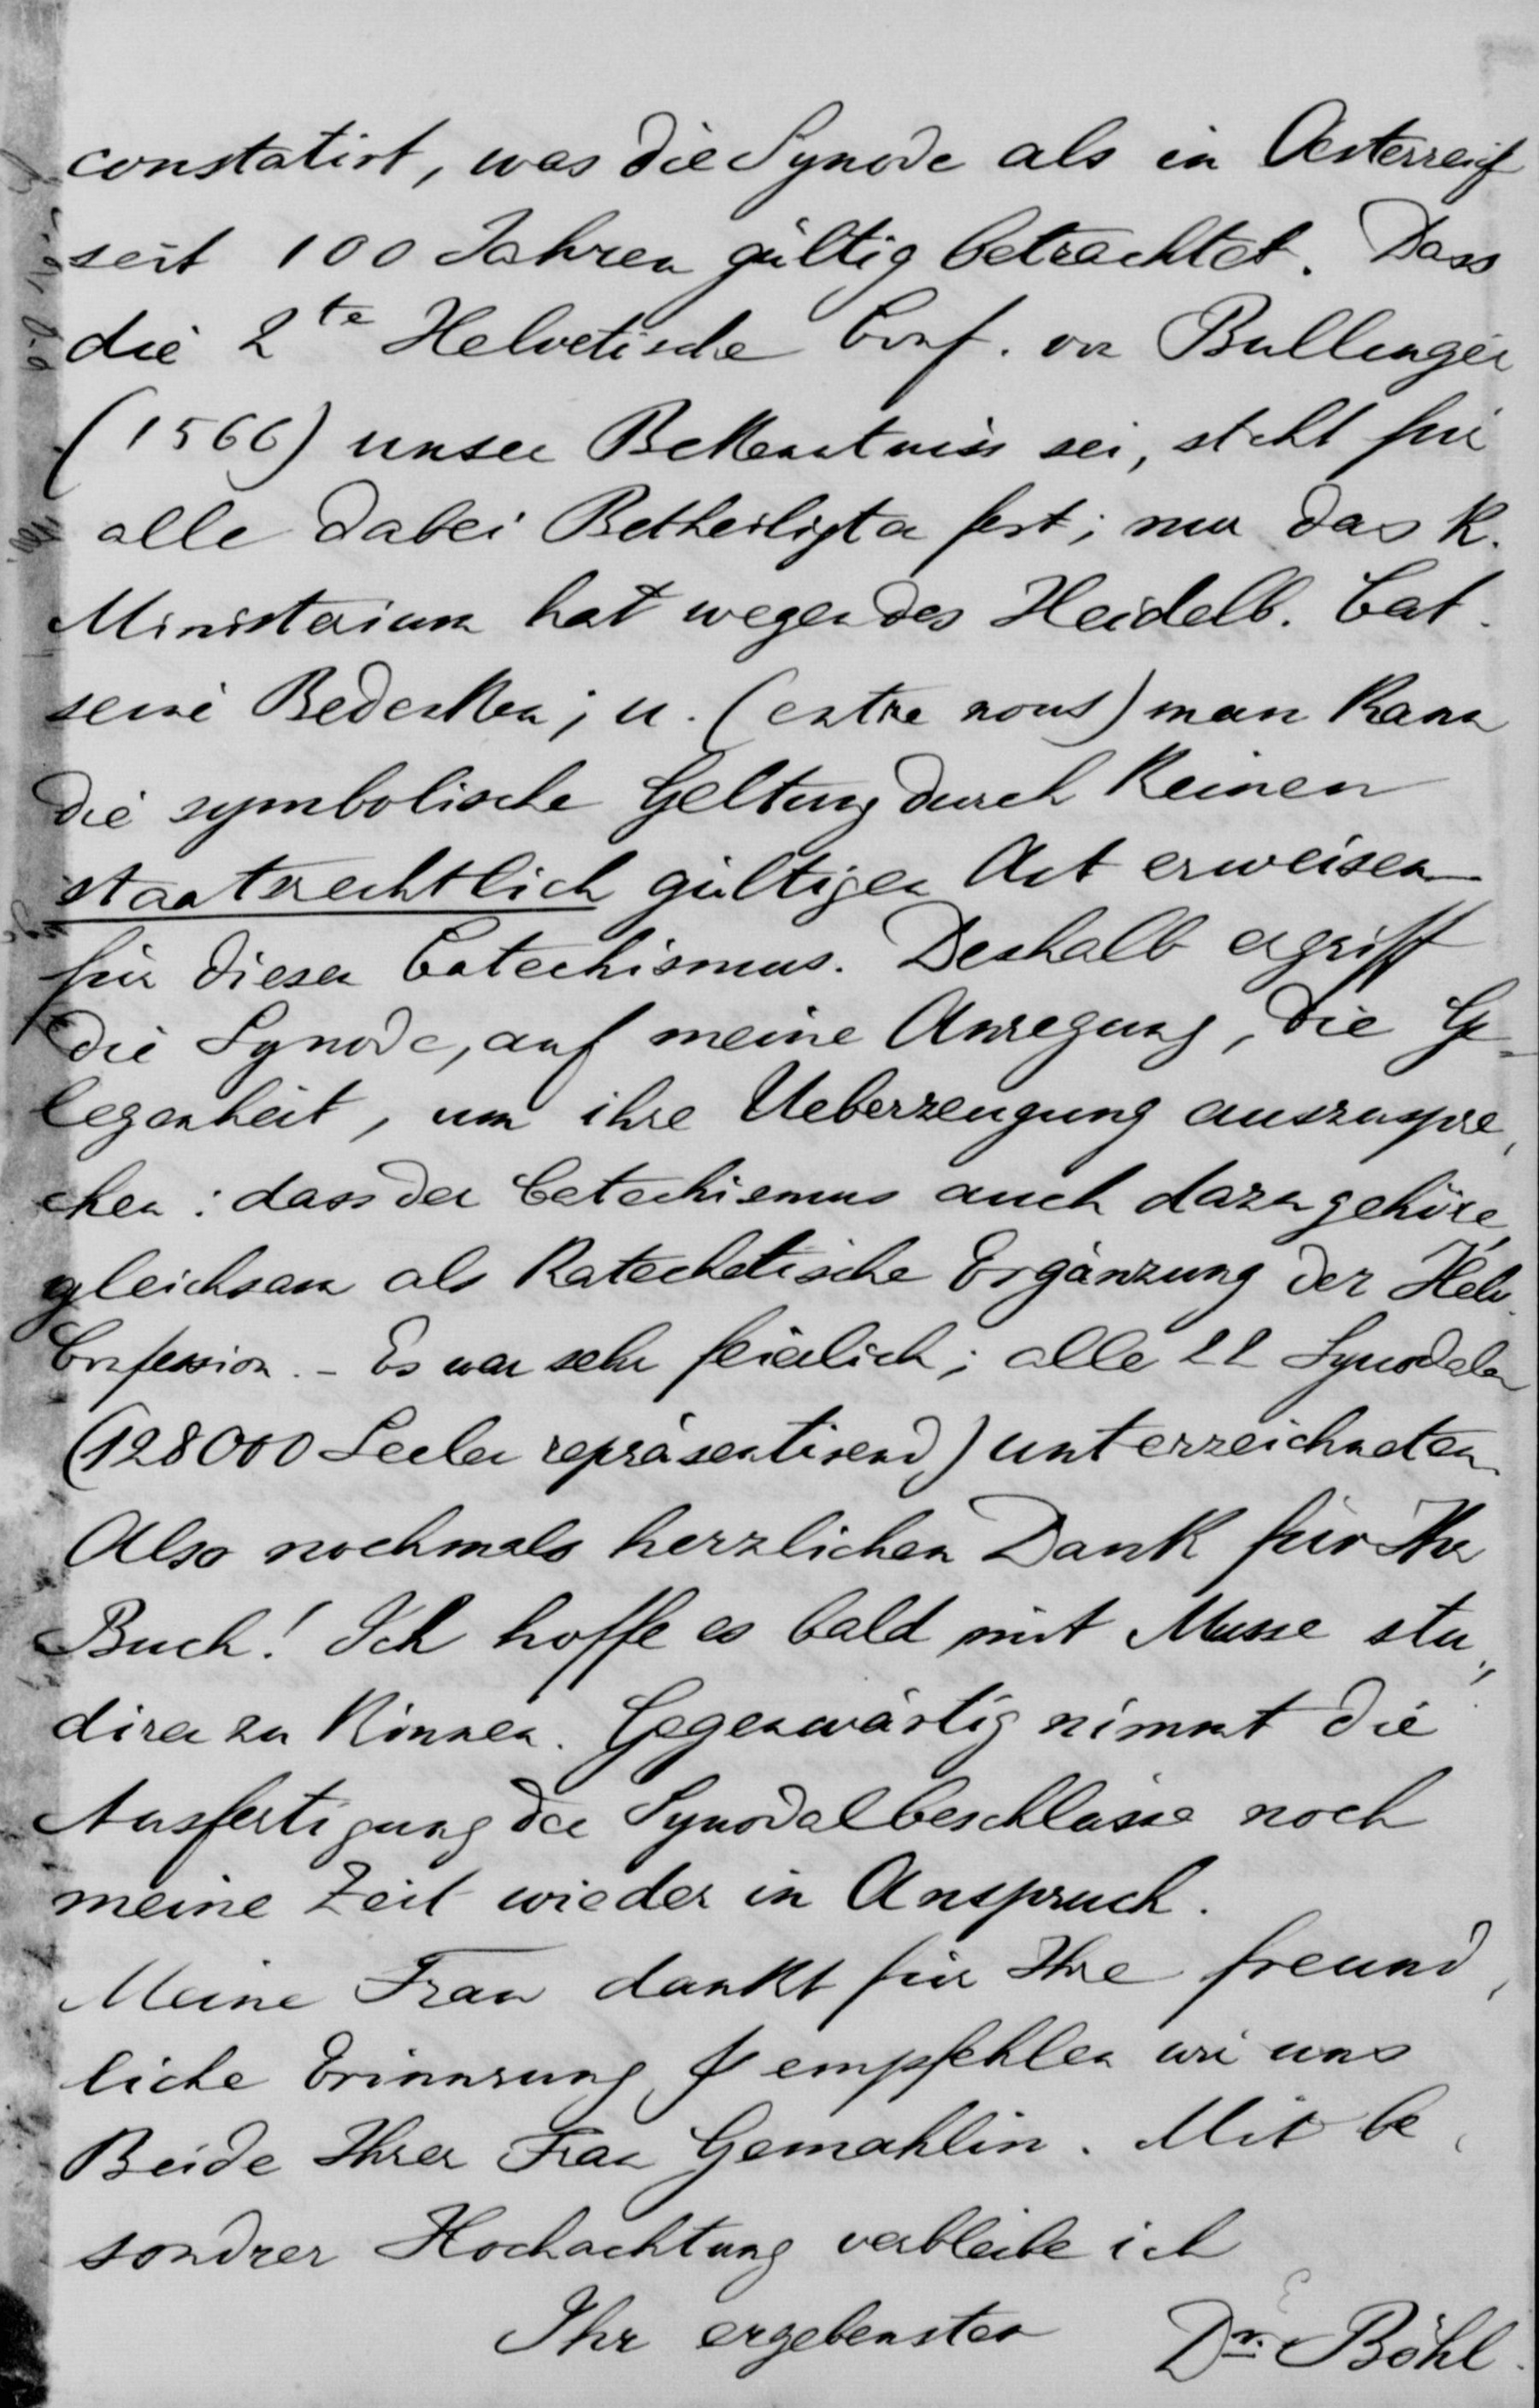 constatirt, was die Synode als in Oesterreich
seit 100 Jahren gültig betrachtet. Dass
die 2te Helvetische Conf. von Bullinger
(1566) unser Bekenntniss sei, steht für
alle dabei Betheiligten fest; nur das k.
Ministerium hat wegen des Heidelb. Cat.
seine Bedenken; u. (entre nous) man kann
die symbolische Geltung durch keinen
staatsrechtlich gültigen Act erweisen
für diesen Catechismus. Deshalb ergriff
die Synode, auf meine Anregung, die Ge-
legenheit, um ihre Ueberzeugung auszuspre-
chen: dass der Catechismus auch dazu gehöre,
gleichsam als katechetische Ergänzung der Helv.
Confession. – Es war sehr feierlich; alle 22 Synodalen
(128000 Seelen repräsentirend) unterzeichneten.
Also nochmals herzlichen Dank für Ihr
Buch! Ich hoffe es bald mit Musse stu-
diren zu können. Gegenwärtig nimmt die
Ausfertigung der Synodalbeschlüsse noch
meine Zeit wieder in Anspruch.
Meine Frau dankt für Ihre freund-
liche Erinnrung & empfehlen wir uns
Beide Ihrer Frau Gemahlin. Mit be-
sondrer Hochachtung verbleibe ich
Ihr ergebenster Dr. Böhl.